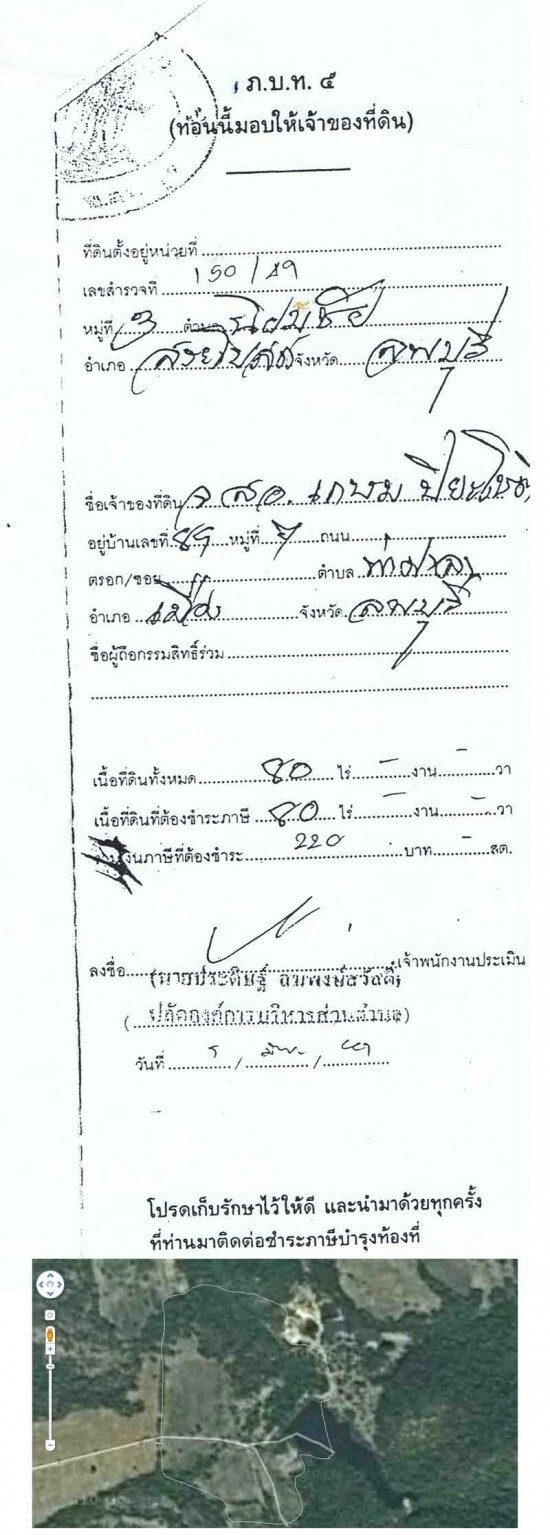 ภ.บ.ท. ๕
(ท่อนนี้มอบให้เจ้าของที่ดิน)
ที่ดินตั้งอยู่หน่วยที่
เลขสำรวจที่ 150/49
หมู่ที่ 3 ตำบล นิยมชัย
อำเภอ สระโบสถ์ จังหวัด ลพบุรี
ชื่อเจ้าของที่ดิน จ.ส.อ. เกษม
อยู่บ้านเลขที่ หมู่ที่ 7 ถนน
ตรอก/ซอย ตำบล ท่าศาลา
อำเภอ เมือง จังหวัด ลพบุรี
ชื่อผู้ถือกรรมสิทธิ์ร่วม
เนื้อที่ดินทั้งหมด 80 ไร่ - งาน - วา
เนื้อที่ดินที่ต้องชำระภาษี 80 ไร่ - งาน - วา
เงินภาษีที่ต้องชำระ 220 บาท - สต.
ลงชื่อ เจ้าพนักงานประเมิน
(นายประดิษฐ์
(ปลัดองค์การบริหารส่วนตำบล)
วันที่ / /
โปรดเก็บรักษาไว้ให้ดี และนำมาด้วยทุกครั้ง
ที่ท่านมาติดต่อชำระภาษีบำรุงท้องที่